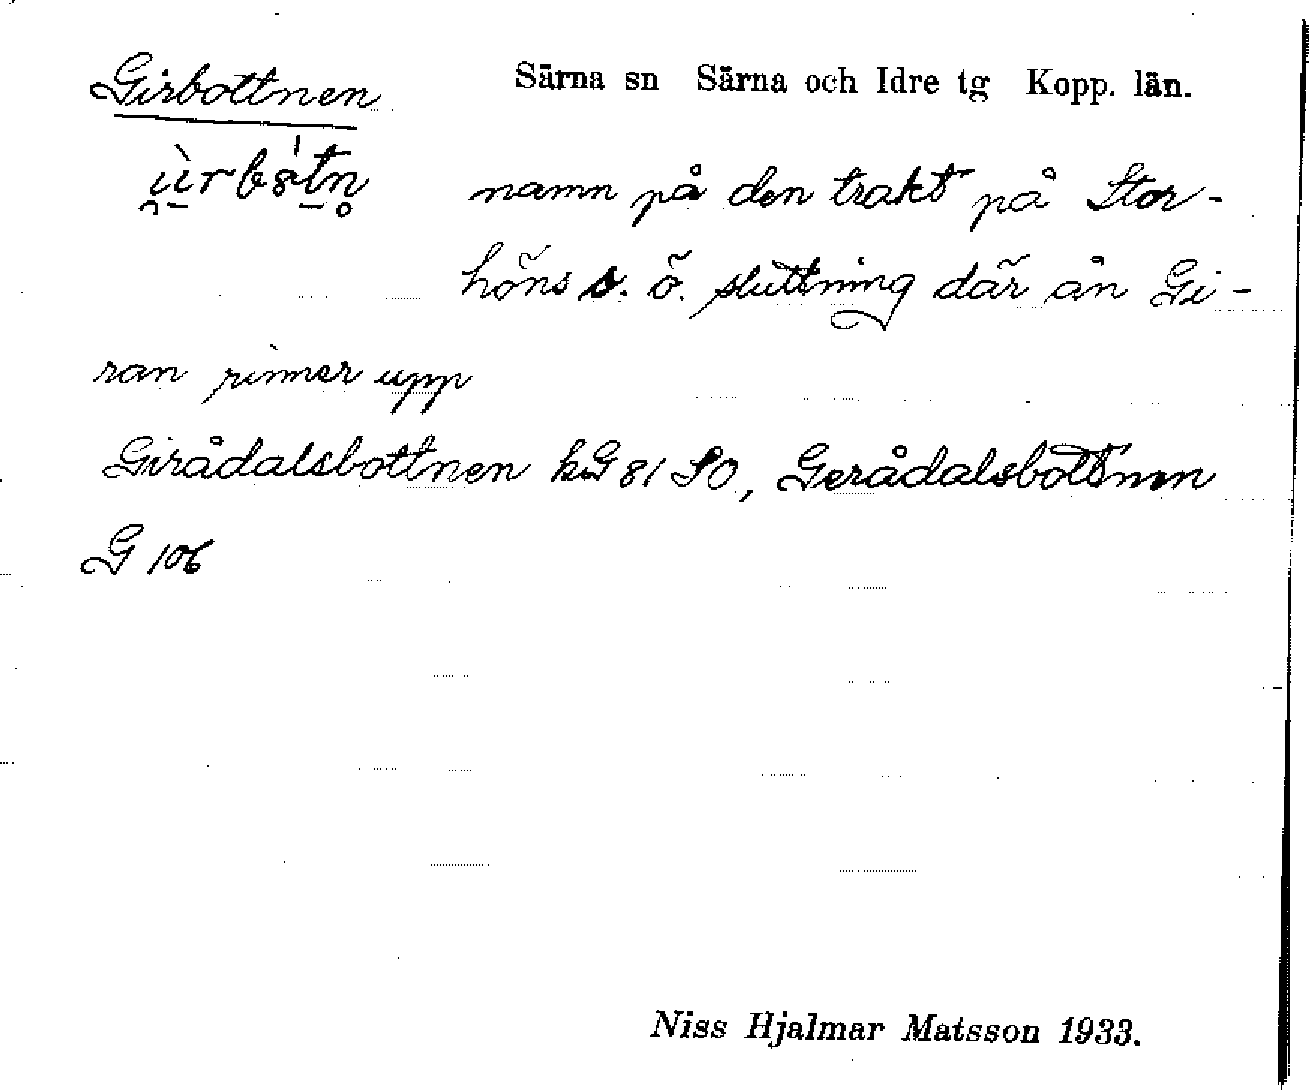 Girbottnen
Särna sn Särna och Idre tg Kopp. län.
namn på den trakt på Stor-
höns s. ö. sluttning där ån Gi-
ran rinner upp
Girådalsbottnen kG 81 SO, Gerådalsbottnen
G 106
Niss Hjalmar Matsson 1933.